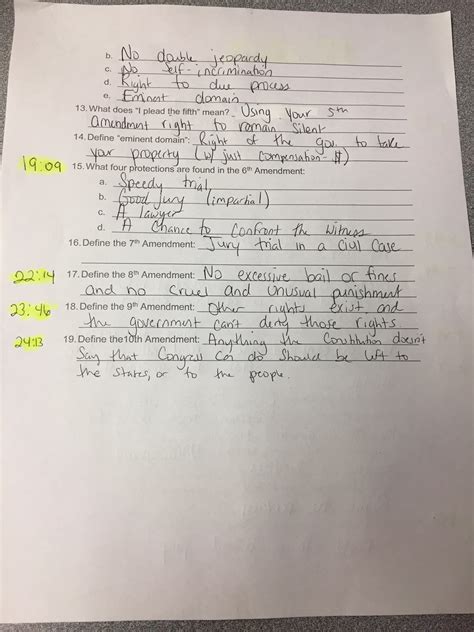 b. No double jeopardy
c. No self-incrimination
d. Right to due process
e. Eminent domain
13. What does "I plead the fifth" mean? Using your 5th
amendment right to remain silent
14. Define "eminent domain": Right of the gov. to take
your property (w/ just compensation - $)
19:09 15. What four protections are found in the 6th Amendment:
a. Speedy trial
b. Good jury (impartial)
c. A lawyer
d. A chance to confront the witness
16. Define the 7th Amendment: Jury trial in a civil case
22:14 17. Define the 8th Amendment: No excessive bail or fines
and no cruel and unusual punishment
23:46 18. Define the 9th Amendment: Other rights exist and
the government can't deny those rights
24:13 19. Define the 10th Amendment: Anything the Constitution doesn't
say that Congress can do should be left to
the states, or to the people.